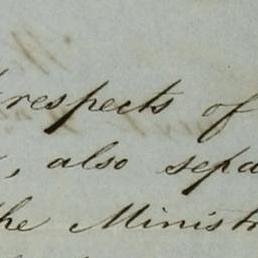 respects of
, also sepa
the Ministr